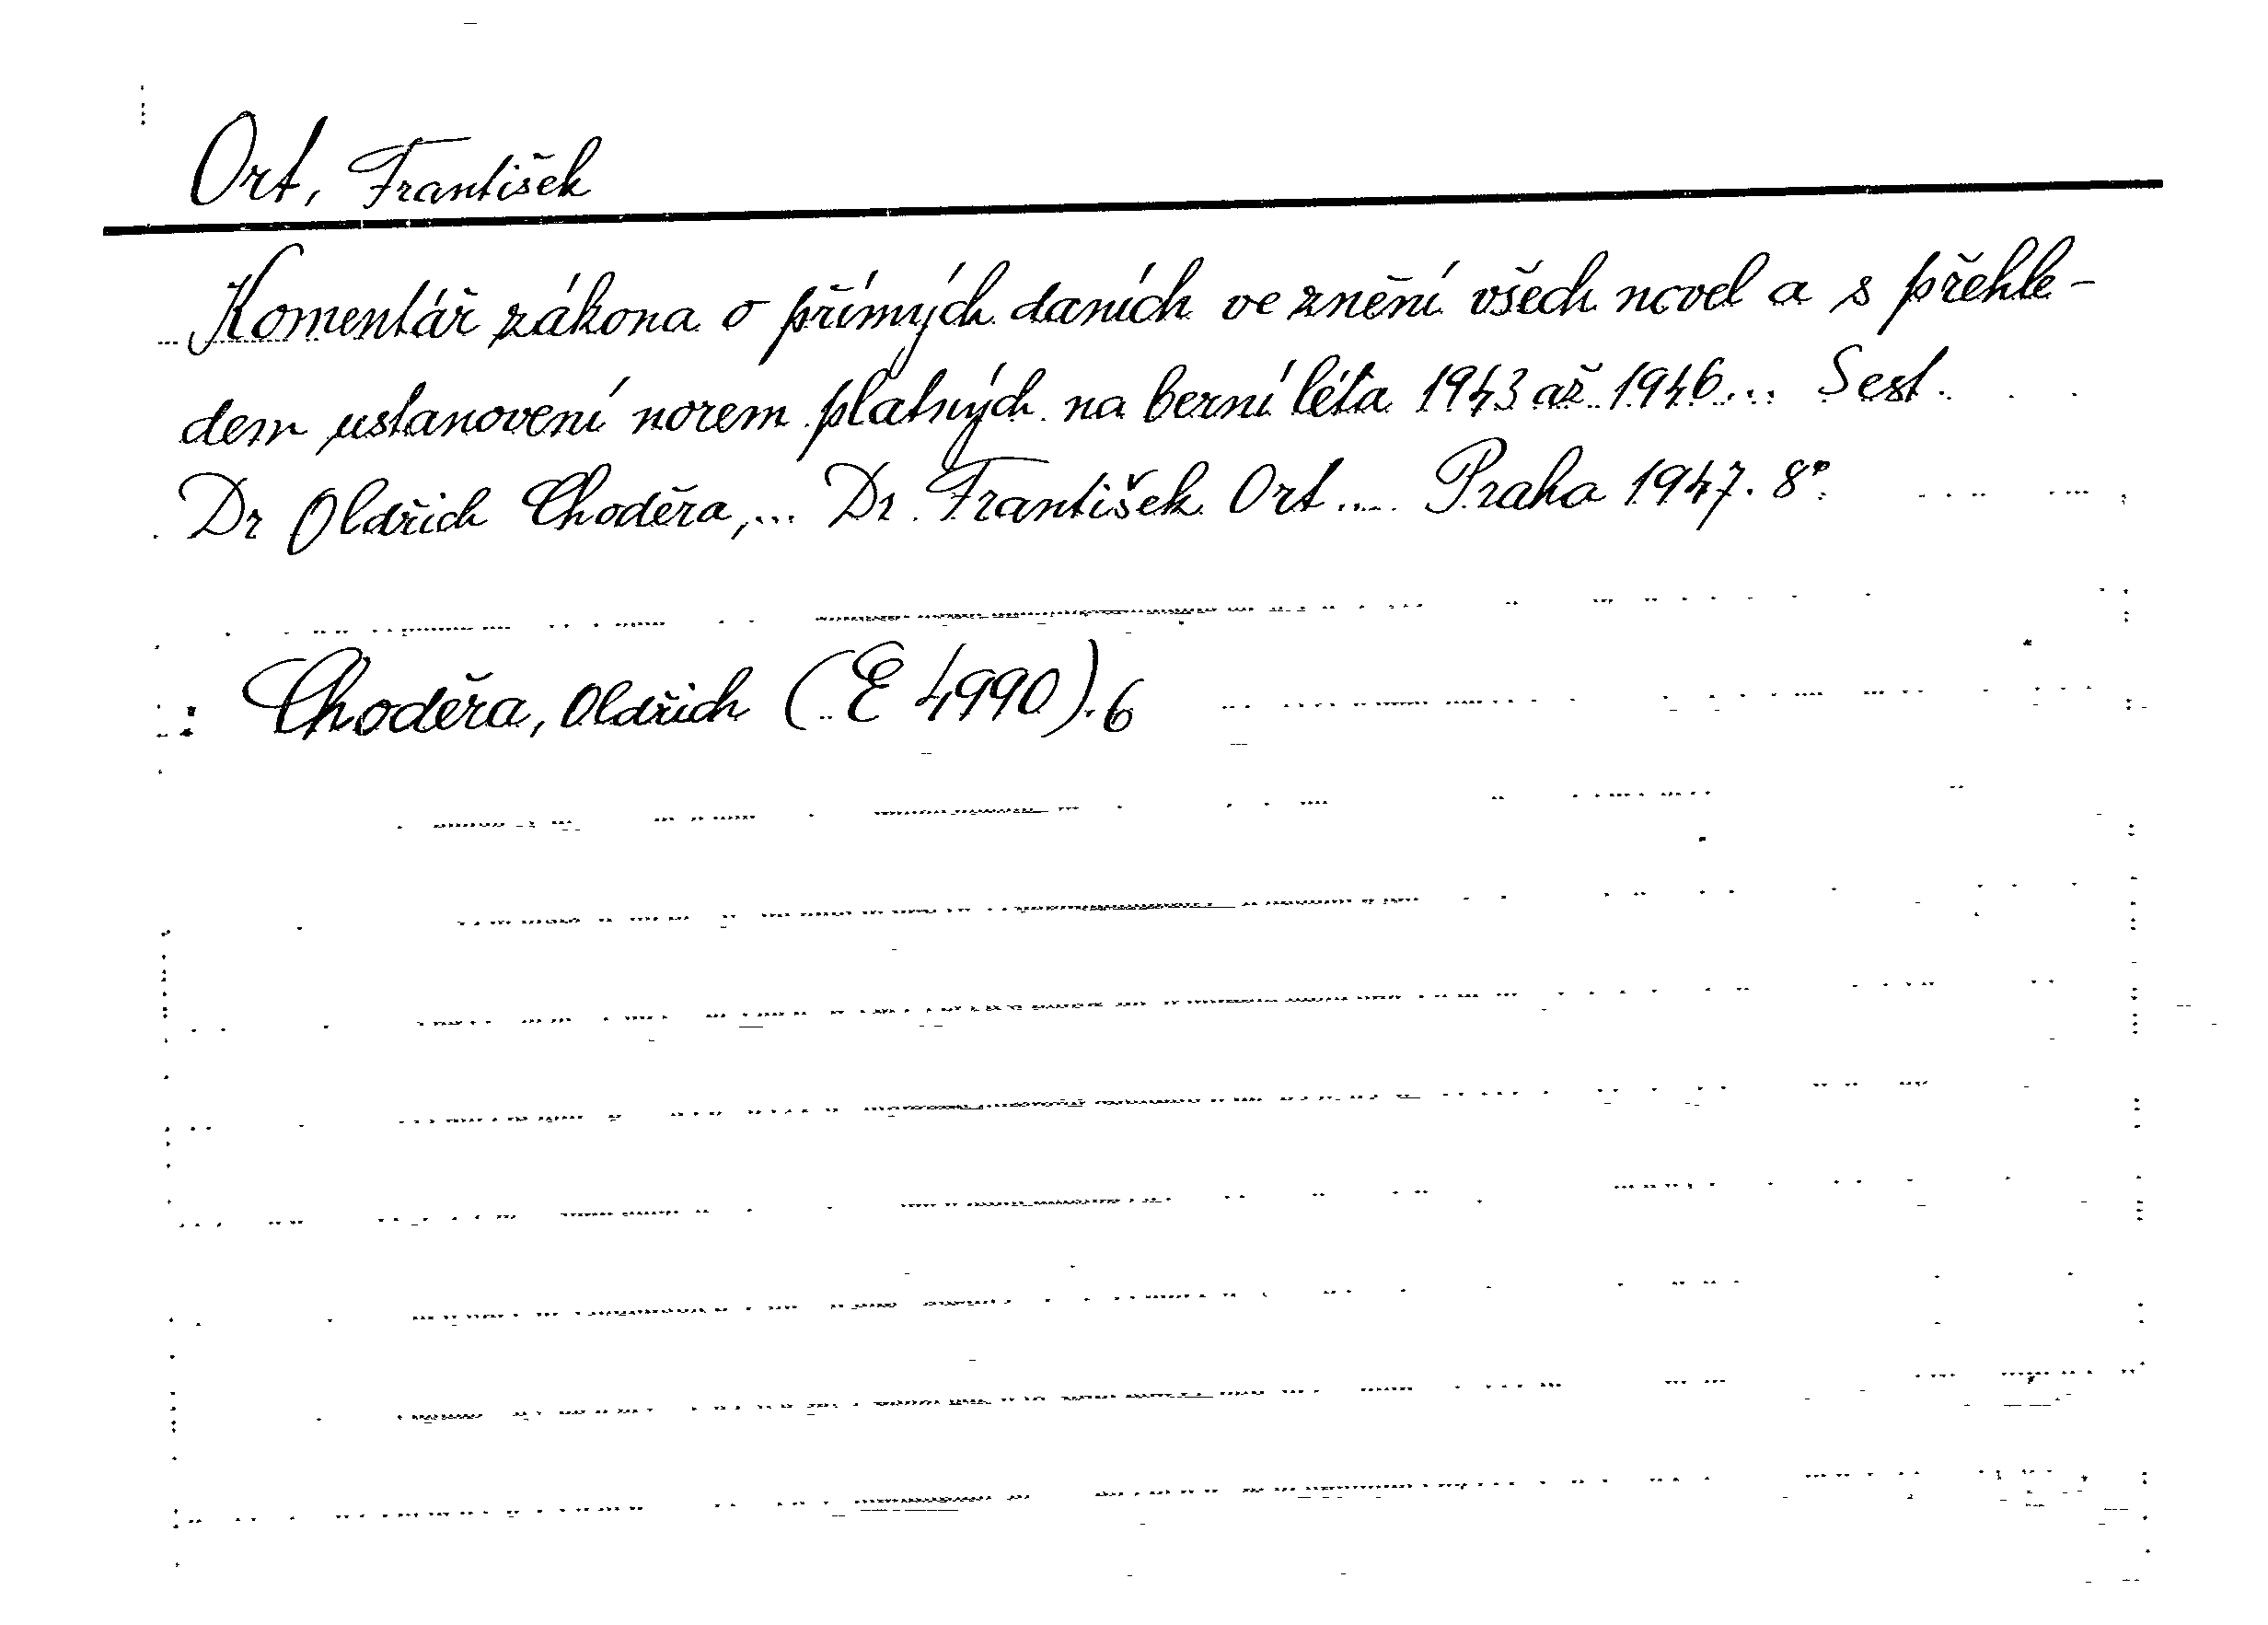 Ort, František
Komentář zákona o přímých daních ve znění všech novel a s přehle-
dem ustanovení norem platných na berní léta 1943 až 1946... Sest.
Dr Oldřich Choděra,... Dr. František Ort.... Praha 1947. 8°.
: Choděra, Oldřich (E 4990).6